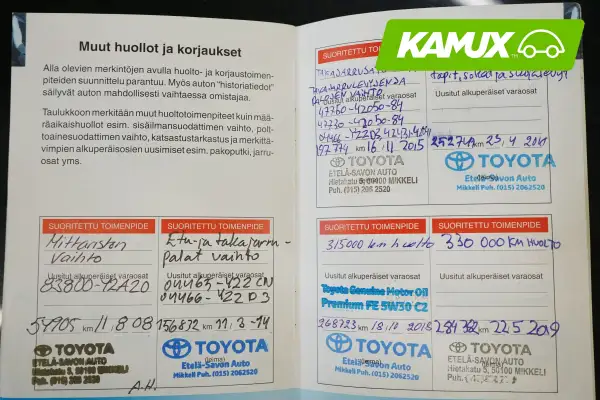 KAMUX
Muut huollot ja korjaukset
Alla olevien merkintöjen avulla huolto- ja korjaustoimen-
piteiden suunnittelu parantuu. Myös auton "historiatiedot"
säilyvät auton mahdollisesti vaihtaessa omistajaa.
Taulukkoon merkitään muut huoltotoimenpiteet kuin mää-
räaikaishuollot esim. sisäilmansuodattimen vaihto, polt-
toainesuodattimen vaihto, katsastustarkastus ja merkittä-
vimpien alkuperäisosien uusimiset esim. pakoputki, jarru-
osat yms.
SUORITETTU TOIMENPIDE
Mittariston
vaihto
Uusitut alkuperäiset varaosat
83800-42A20
54905 km 11.8.08
TOYOTA
ETELÄ-SAVON AUTO
Hietakatu 5, 50100 MIKKELI
Puh. (015) 206 2520
SUORITETTU TOIMENPIDE
Etu- ja takajarru-
palat vaihto
Uusitut alkuperäiset varaosat
04465-42200
04466-42203
156872 km 11.3-14
(leima)
TOYOTA
Etelä-Savon Auto
Mikkeli Puh. (015) 2062520
A.H.
SUORITETTU TOIMENPIDE
PALOJEN VAIHTO
47750-42050-84
47730-42050-84
197774 km 16.11.2015
TOYOTA
ETELÄ-SAVON AUTO
Hietakatu 5, 50100 MIKKELI
Puh. (015) 206 2520
Uusitut alkuperäiset varaosat
252741 km 23.4.2017
TOYOTA
Etelä-Savon Auto
Mikkeli Puh. (015) 2062520
SUORITETTU TOIMENPIDE
315000 km huolto
Uusitut alkuperäiset varaosat
Toyota Genuine Motor Oil
Premium FE 5W30 C2
268723 km 18.10.2018
(leima)
TOYOTA
Etelä-Savon Auto
Mikkeli Puh. (015) 2062520
SUORITETTU TOIMENPIDE
330 000 KM HUOLTO
Uusitut alkuperäiset varaosat
284382 km 22.5.2019
TOYOTA
ETELÄ-SAVON AUTO
Hietakatu 5, 50100 MIKKELI